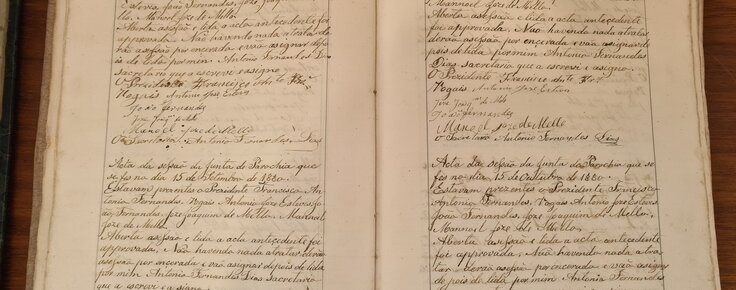 Estevis João Fernandis, Joze Joaquim
llo, Manoel joze de Mello.
Aberta asefsão e lida a acta antecedente foi
approvada, Não havendo nada a tratar de
rão asefsão por encerada e vão asignar depo
is de lida por mim Antonio Fernandes Dias
Secratario que a escrevi e asigno
O Prezidente Francisco
Vogais Antonio Joze Esteves
João Fernandes
Joze Joaqm de Melo
Manoel joze de Mello
O Secratario Antonio Fernandes Dias
Acta da sefsão da Junta da Parochia que
se fes no dia 15 de Setembro de 1880
Estavam prezentes o Prezidente Francisco An
tonio Fernandes. Vogais Antonio joze Esteves jo
ão Fernandis, joze joaquim de Mello, Manoel
joze de Mello.
Aberta asefsão e lida a acta antecedente foi
approvada, Não havendo nada atratar, derão
asefsão por encerada e vão asignar depois de lida
por mim Antonio Fernandes Dias secratario
que a escrevi e asigno
Manoel joze de Mello.
Aberta asefsão e lida a acta antecedente
foi approvada, Não havendo nada atratar
derão asefsão por encerada e vão asignar de
pois de lida por mim Antonio Fernandes
Dias, secratario que a escrevi e asigno.
O Prezidente Francisco
Vogais Antonio Joze Esteves
Joze Joaqm de Melo
João Fernandes
Manoel joze de Mello
O Secratario Antonio Fernandes Dias
Acta da sefsão da Junta da Parochia que se
fes no dia 15 de Outubro de 1880.
Estavam prezentes o Prezidente Francisco
Antonio Fernandes. Vogais Antonio joze Esteves.
João Fernandis, joze Joaquim de Mello.
Mannoel joze de Mello.
Aberta asefsão e lida a acta antecedente
foi approvada, Não havendo nada atra
tar derão asefsão por encerada e vão asignar
depois de lida por mim, Antonio Fernandes